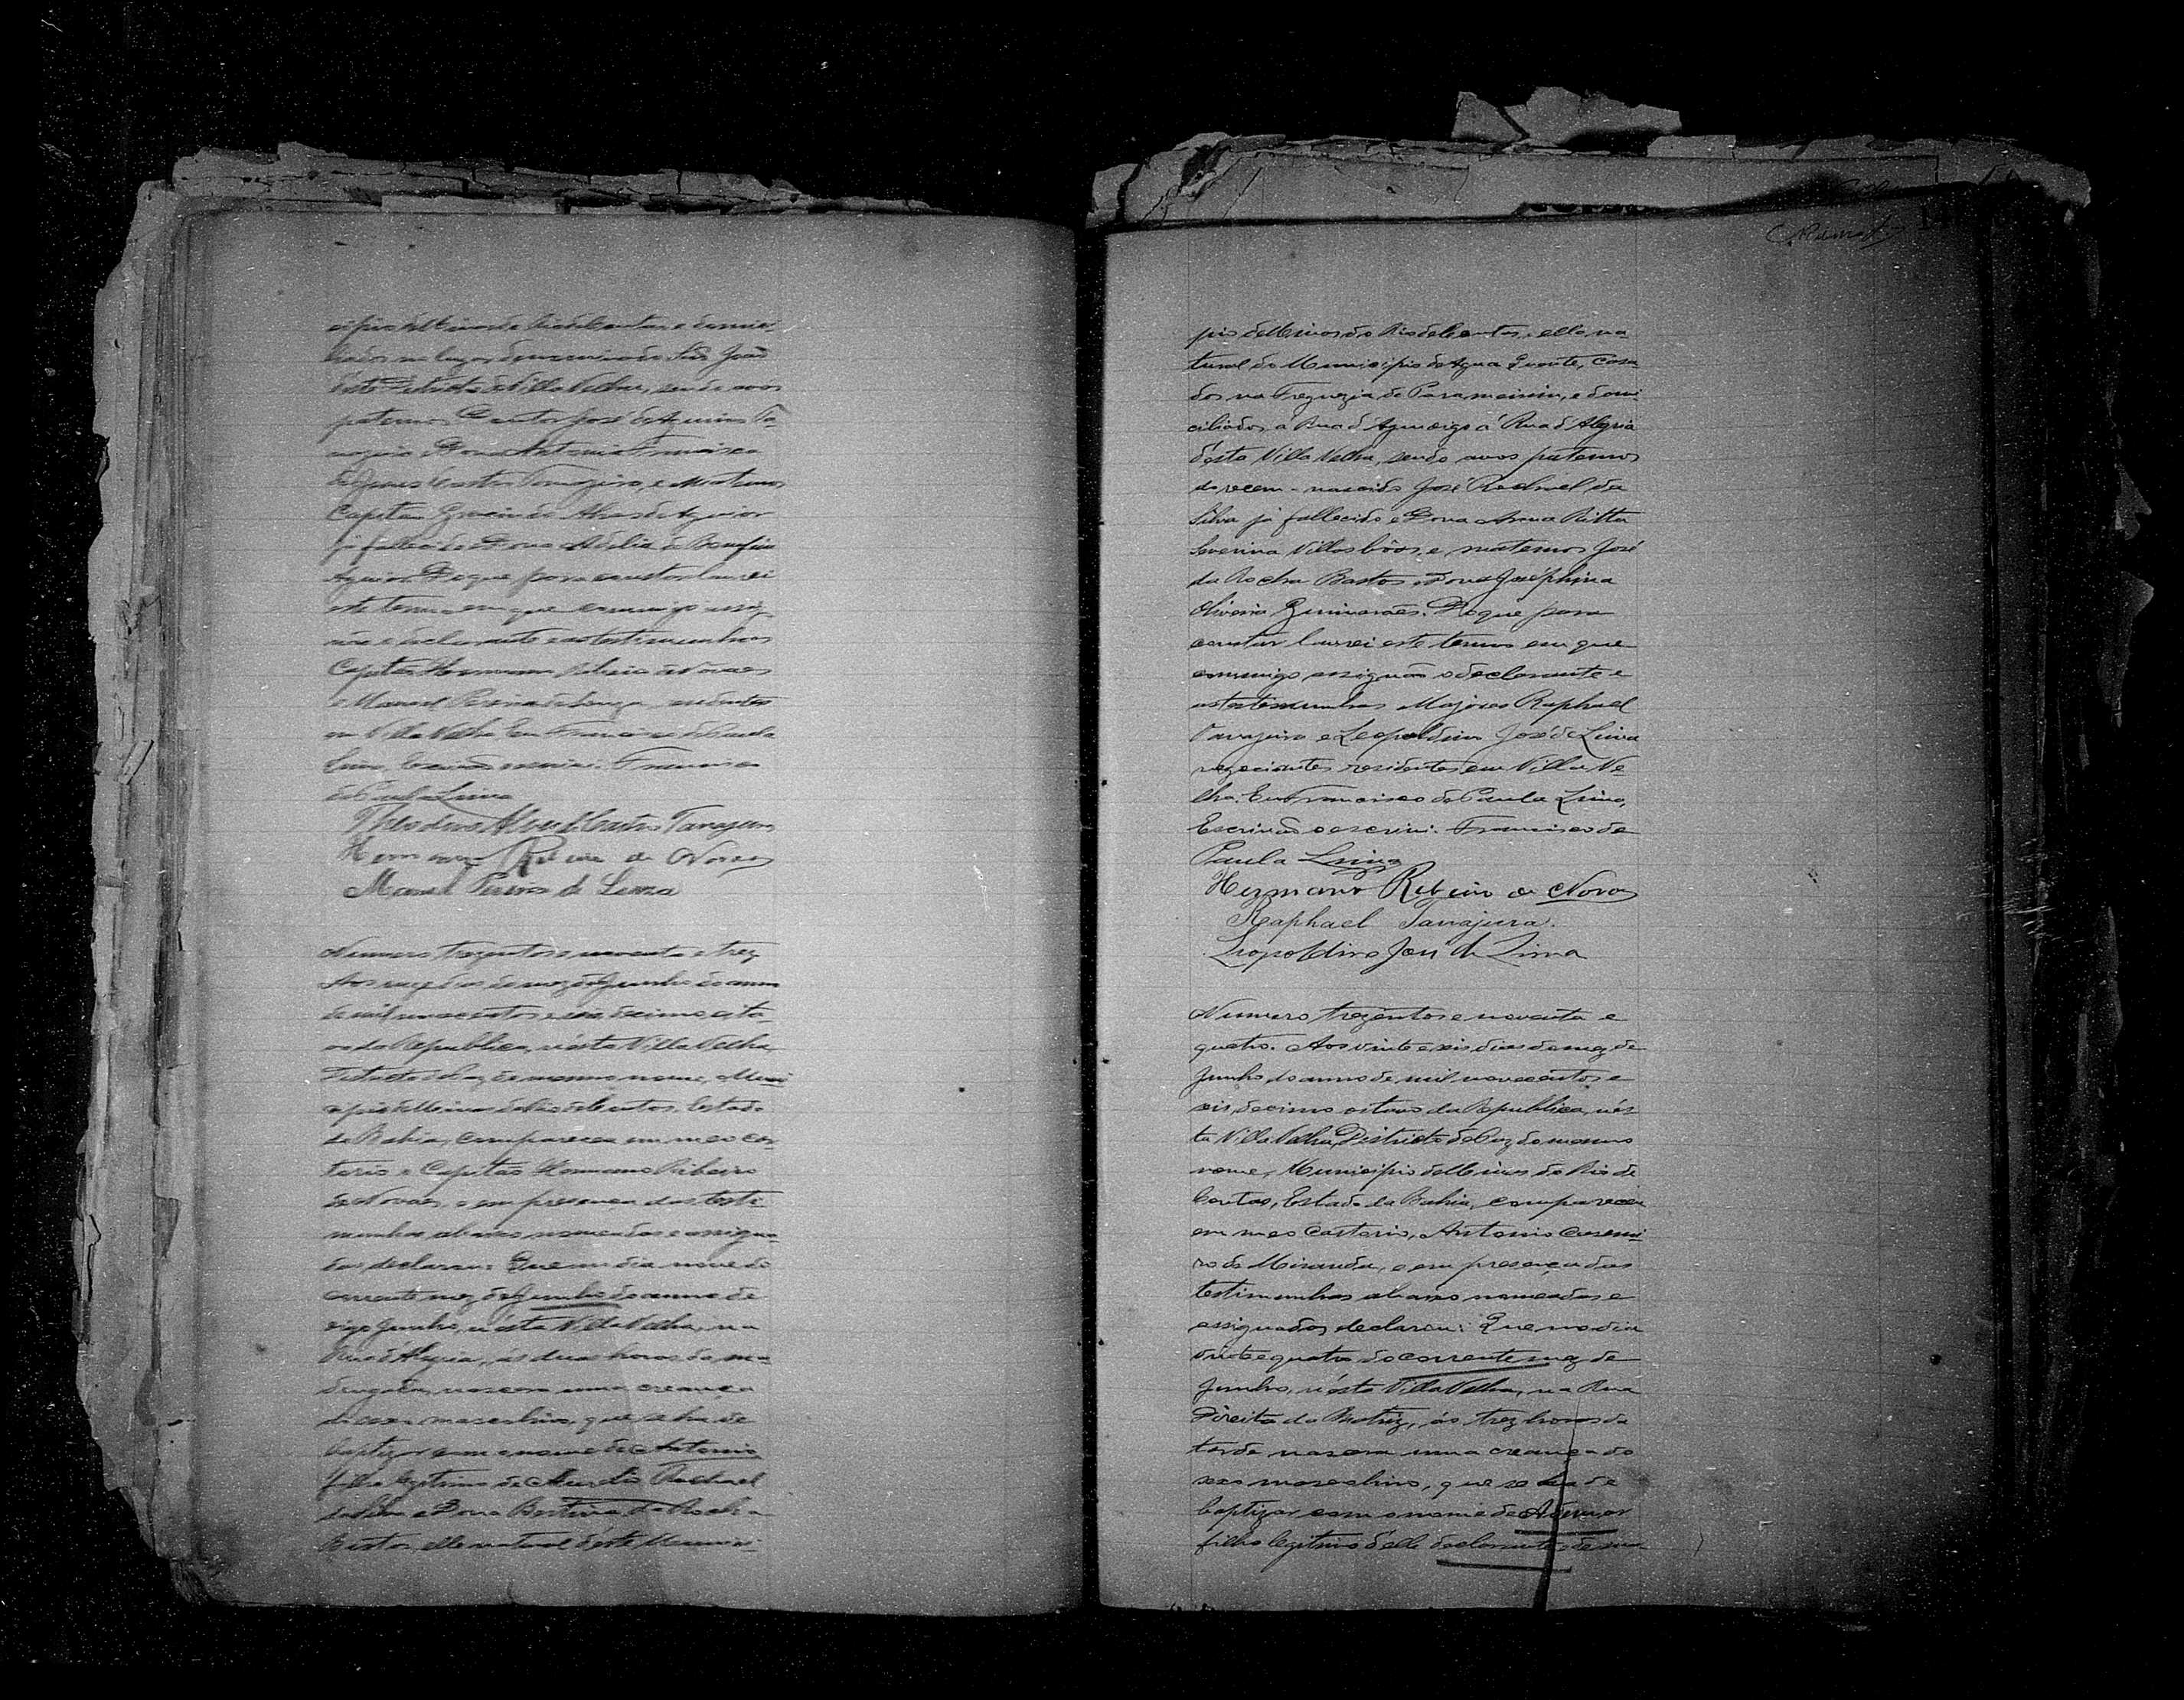 cipio de Minas do Rio de Contas, e domici
liados no lugar denominado São João
d'este Districto de Villa Velha, sendo avos
paternos José de Aquino Ta
Dona Antonia
Castro Tanajura, e maternos
Capitão Alves de Aguiar
já fallecido e Dona Adelia do Bomfim
Aguiar. Do que para constar lavrei
este termo em que commigo assig
não o declarante e as testemunhas
Capitão Hermano Ribeiro de Novaes
e Manoel Pereira de residentes
em Villa Velha. Eu Francisco de Paula
Lima, Escrivão o escrevi. Francisco
de Paula Lima
Theodoro Alves de Castro Tanajura
Hermano Ribeiro de Novaes
Manoel Pereira de
Numero trezentos e noventa e trez
Aos dias do mez de Junho do anno
de mil novecentos e seis, decimo oita
vo da Republica, n'ésta Villa Velha,
Districto de Paz do mesmo nome, Muni
cipio de Minas do Rio de Contas, Estado
da Bahia, compareceu em meo car
torio o Capitão Hermano Ribeiro
de Novaes, e em presença das teste
munhas abaixo nomeadas e assigna
das declarou: Que no dia nove do
corrente mez de Junho do anno de
digo Junho, n'ésta Villa Velha, na
Rua d'Alegria, ás duas horas da ma
drugada, nasceu uma creança
do sexo masculino, que se ha de
baptizar com o nome de Antonio
filho legitimo de Aurelio Rachael
da Silva e Dona da Rocha
Bastos, elle natural d'éste Munici
pio de Minas do Rio de Contas, ella na
tural do Municipio de Agua Quente, casa
dos na Freguezia de Paramirim, e domi
ciliados á Rua d' digo á Rua d'Alegria
d'ésta Villa Velha, sendo avos paternos
do recem-nascido José Rachael da
Silva já fallecido e Dona Anna Ritta
Severina Villasbôas, e maternos José
da Rocha Bastos e Dona Joséphina
Oliveira Guimarães. Do que para
constar lavrei este termo em que
commigo assignão o declarante e
as testemunhas Majores Raphael
Tanajura e Leopoldino José de Lima
negociantes residentes em Villa Ve
lha. Eu Francisco de Paula Lima,
Escrivão o escrevi. Francisco de
Paula Lima
Hermano Ribeiro de Novaes
Raphael Tanajura.
Leopoldino José de Lima
Numero trezentos e noventa e
quatro. Aos vinte e seis dias do mez de
Junho do anno de mil novecentos e
seis, decimo oitavo da Republica, n'és
ta Villa Velha, Districto de Paz do mesmo
nome, Municipio de Minas do Rio de
Contas, Estado da Bahia, compareceu
em meo Cartorio, Antonio Casemi
ro de Miranda, e em presença das
testimunhas abaixo nomeadas e
assignados declarou: Que no dia
vinte e quatro do corrente mez de
Junho, n'ésta Villa Velha, na Rua
Direita da Matriz, ás trez horas da
tarde nasceu uma creança do
sexo masculino, que se ha de
baptizar com o nome de
filho legitimo d'elle declarante e de sua